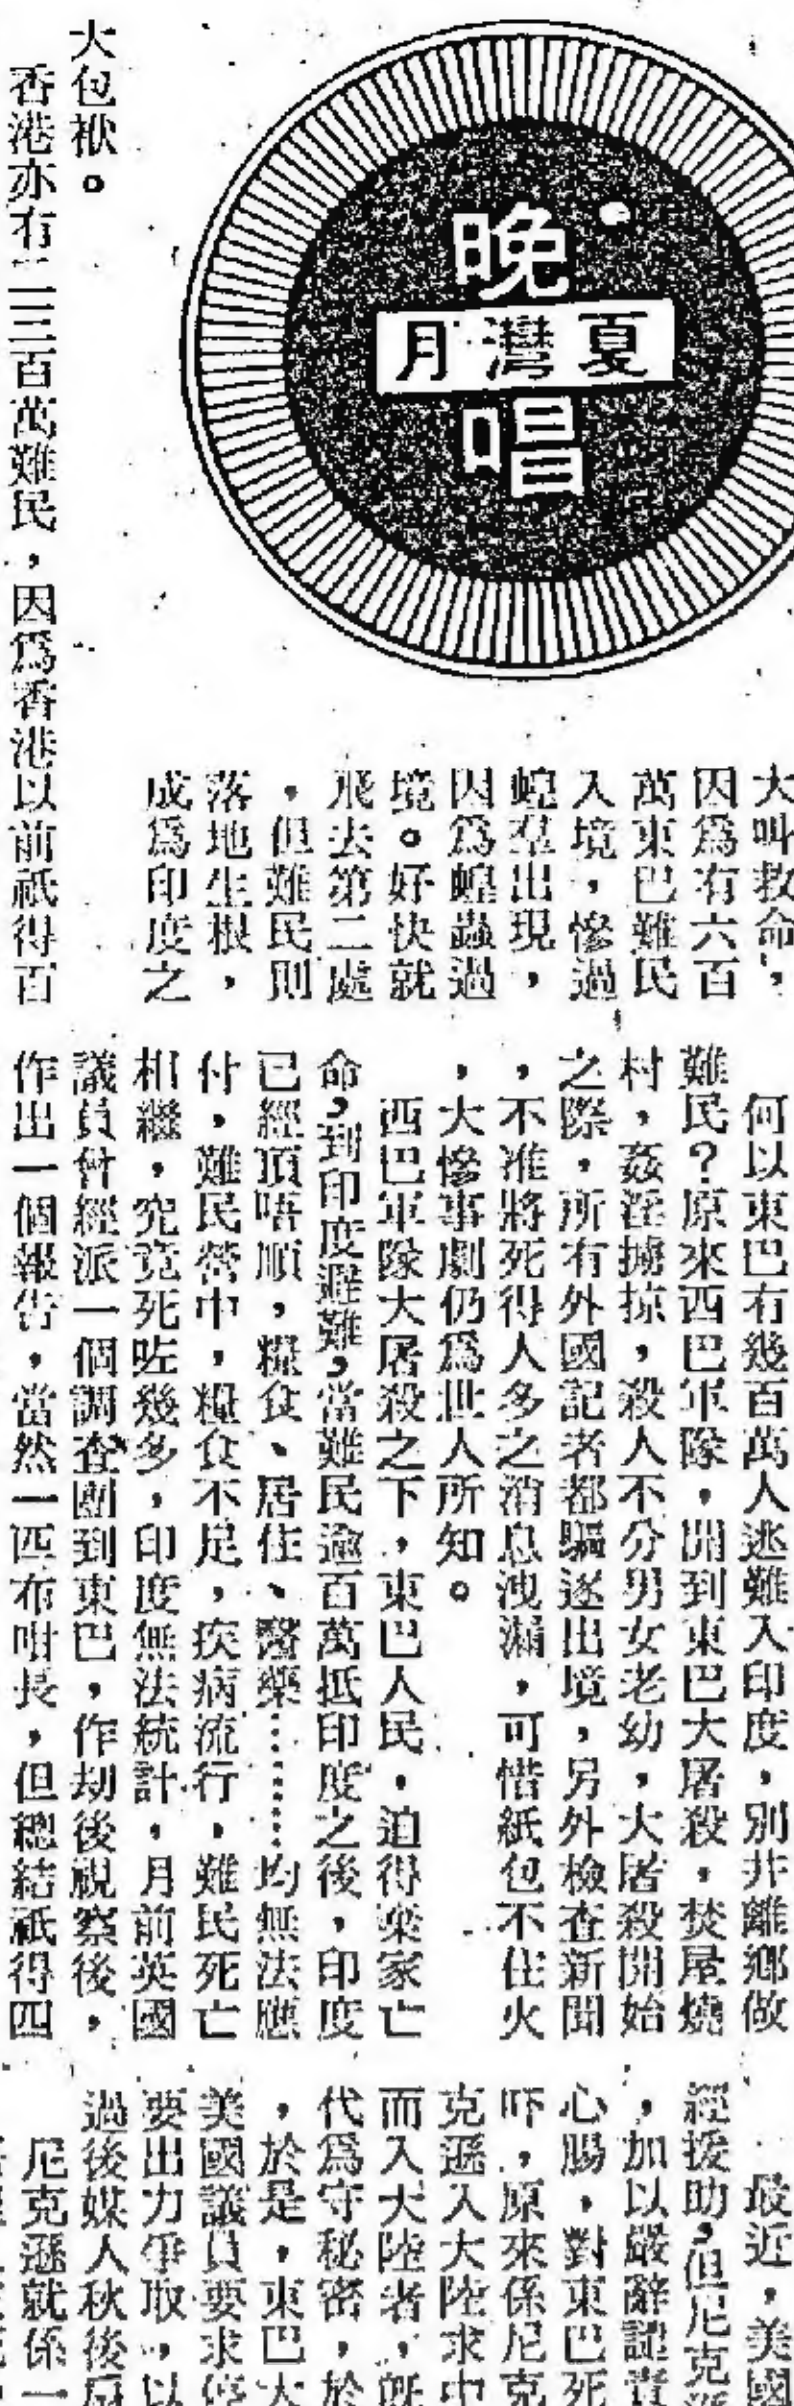 晚
夏灣月
唱
大叫救命，
因為有六百
萬東巴難民
入境，慘過
蝗羣出現，
因為蝗蟲過
境。好快就
飛去第二處
，但難民則
落地生根，
成為印度之
大包袱。
香港亦有二三百萬難民，因為香港以前祇得百
何以東巴有幾百萬人逃難入印度，別井離鄉做
難民？原來西巴軍隊，開到東巴大屠殺，焚屋燒
村，姦淫擄掠，殺人不分男女老幼，大屠殺開始
之際，所有外國記者都驅逐出境，另外檢查新聞
，不准將死得人多之消息洩漏，可惜紙包不住火
，大慘事劇仍為世人所知。
西巴軍隊大屠殺之下，東巴人民，迫得棄家亡
命，到印度避難，當難民逾百萬抵印度之後，印度
已經頂唔順，糧食、居住、醫藥……均無法應
付，難民營中，糧食不足，疾病流行，難民死亡
相繼，究竟死咗幾多，印度無法統計，月前英國
議員曾經派一個調查團到東巴，作劫後視察後，
作出一個報告，當然一匹布咁長，但總結祇得四
最近，美國
經援助，但尼克
，加以嚴辭譴責
心腸，對東巴死
吓，原來係尼克
克遜入大陸求中
而入大陸者，既
代為守秘密，於
，於是，東巴大
美國議員要求停
要出力爭取，以
過後媒人秋後扇
尼克遜就係一